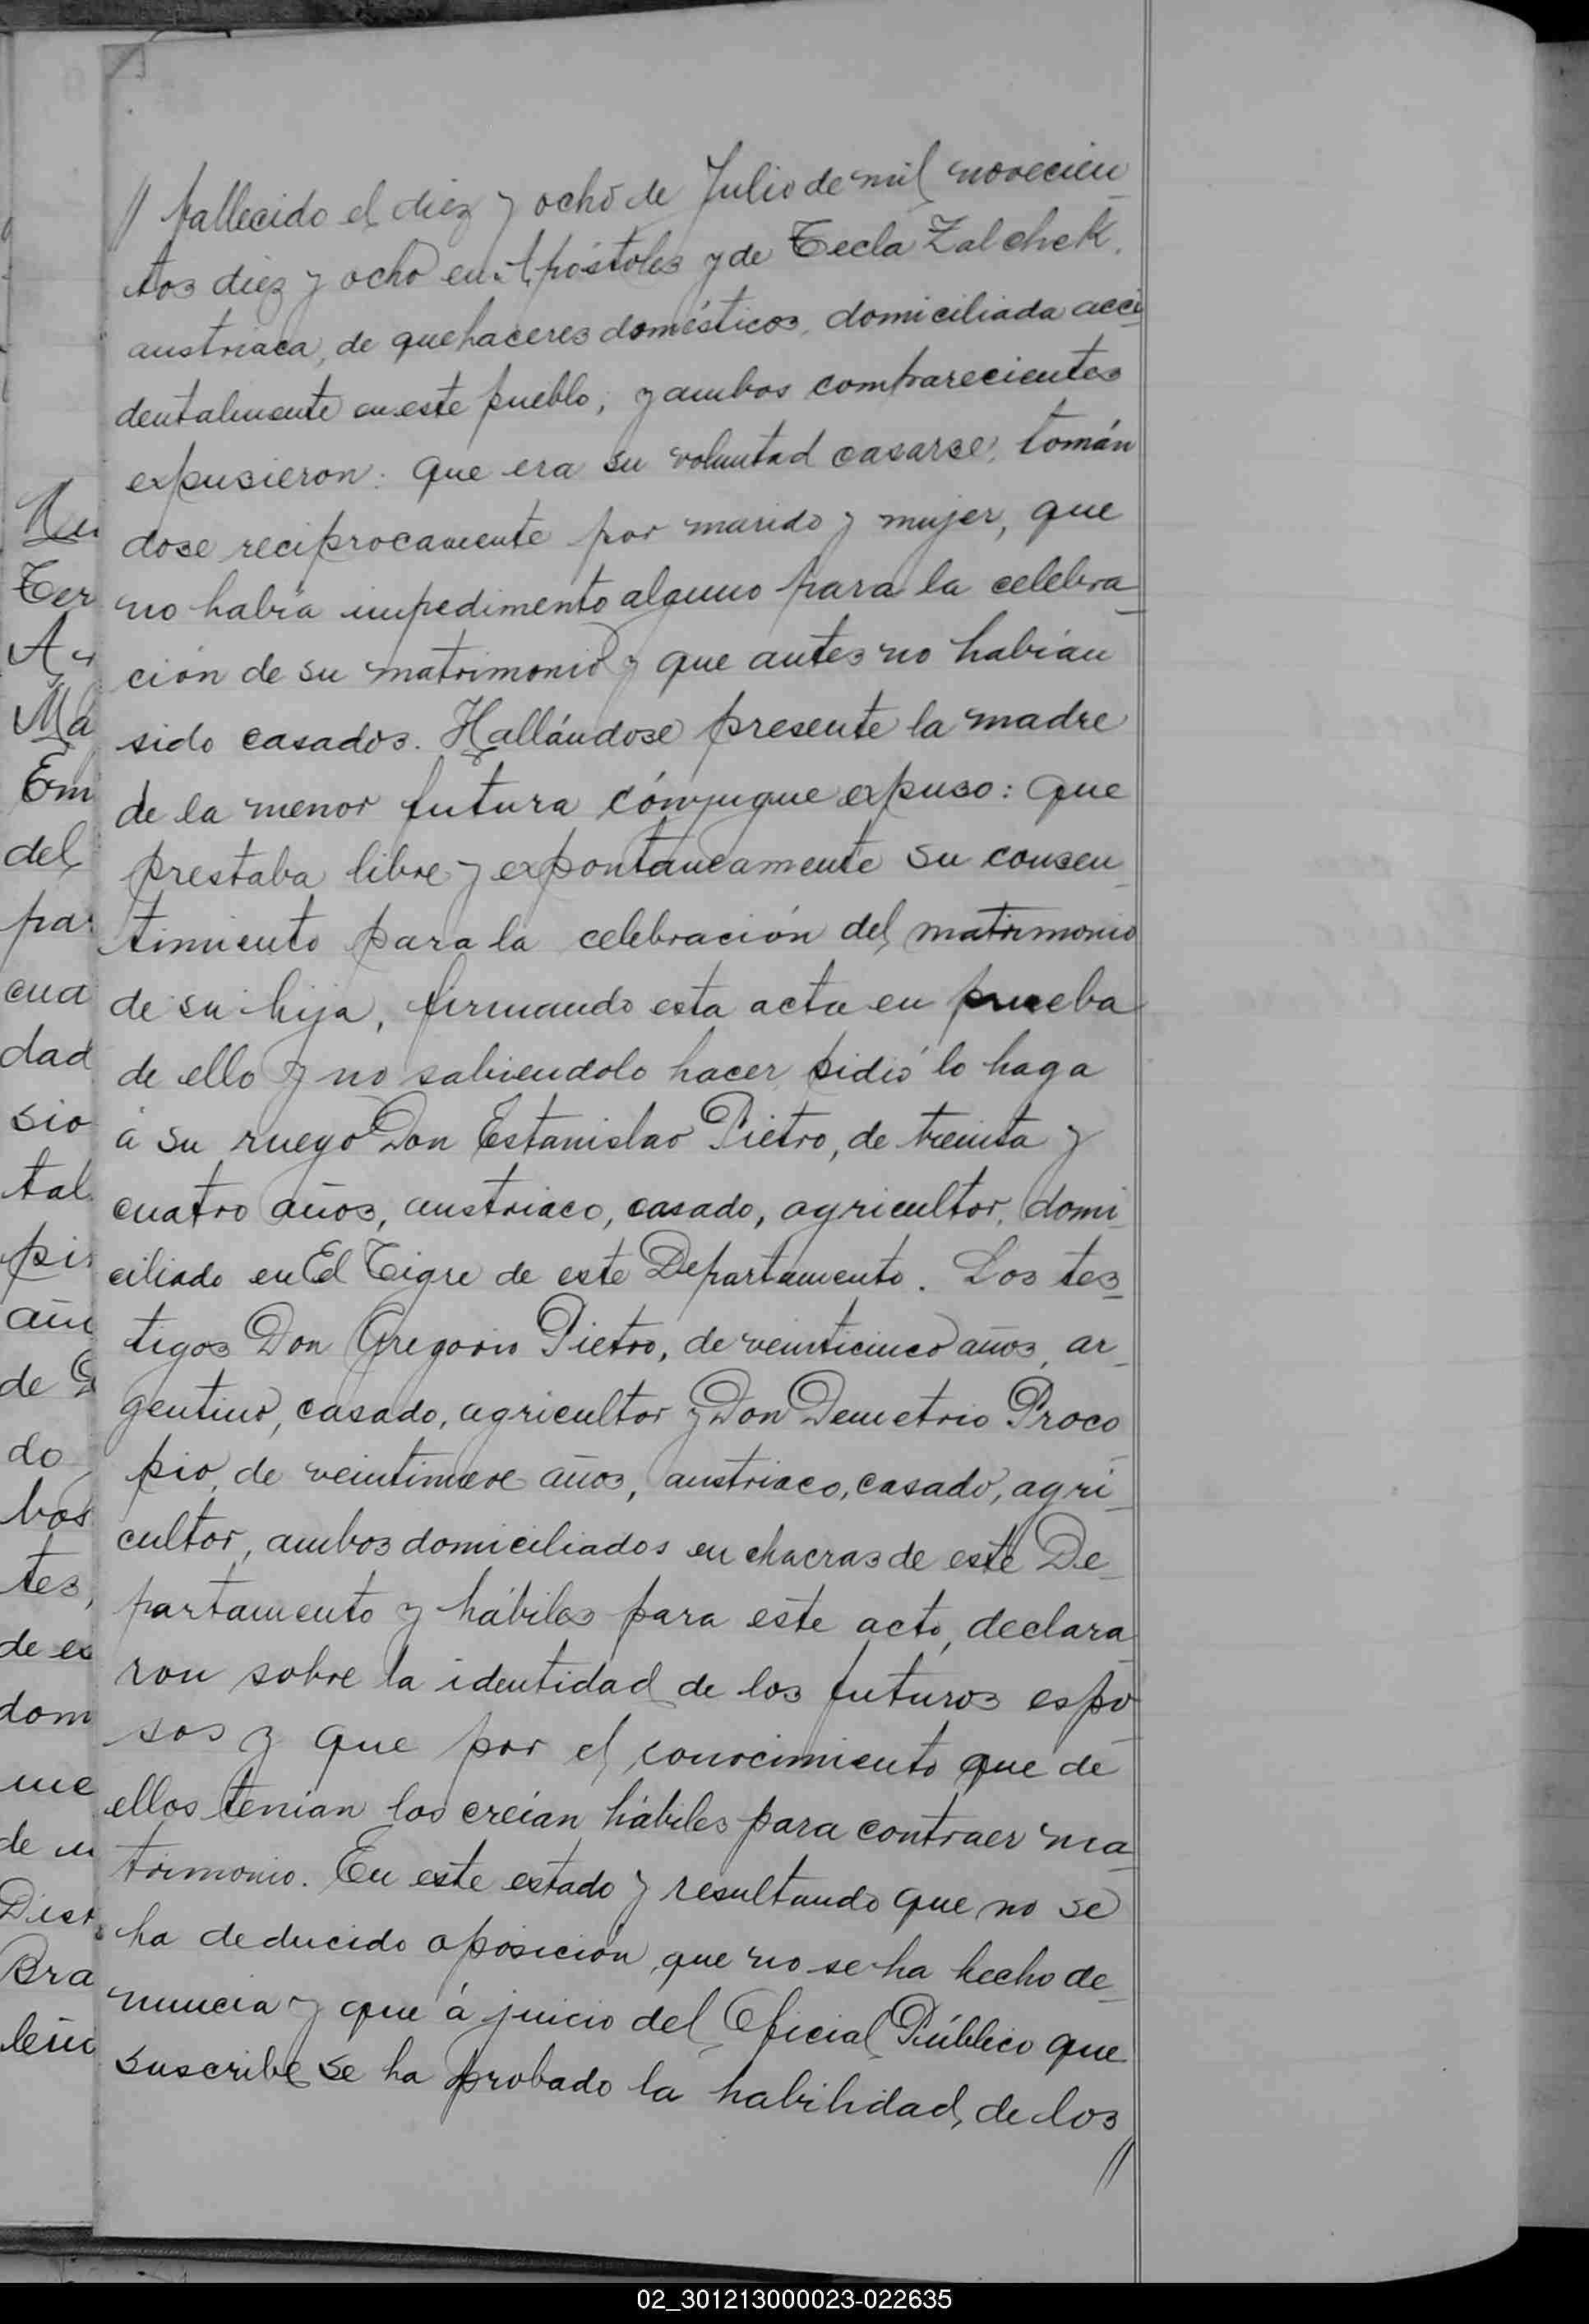 // fallecido el diez y ocho de Julio de mil novecien_
tos diez y ocho en Apóstoles y de Tecla Zalchek,
austriaca, de quehaceres domésticos, domiciliada acci_
dentalmente en este pueblo; y ambos comparecientes
expusieron: Que era su voluntad casarse, tomán
dose reciprocamente por marido y mujer, que
no había impedimento alguno para la celebra_
ción de su matrimonio y que antes no habían
sido casados. Hallándose presente la madre
de la menor futura cónyugue expuso: Que
prestaba libre y expontaneamente su consen_
timiento para la celebración del matrimonio
de su hija, firmando esta acta en prueba
de ello y no sabiendolo hacer pidió lo haga
á su ruego Don Estanislao Pietro, de treinta y
cuatro años, austriaco, casado, agricultor, domi_
ciliado en El Tigre de este Departamento. Los tes_
tigos Don Gregorio Pietro, de veinticinco años, ar_
gentino, casado, agricultor y Don Demetrio Proco_
pio, de veintinueve años, austriaco, casado, agri_
cultor, ambos domiciliados en chacras de este De_
partamento y hábiles para este acto, declara_
ron sobre la identidad de los futuros espo_
sos y que por el conocimiento que de
ellos tenían los creían hábiles para contraer ma_
trimonio. En este estado y resultando que no se
ha deducido oposición, que no se ha hecho de_
nuncia y que á juicio del Oficial Público que
suscribe se ha probado la habilidad de los
//
Ter
Ma
Em
del
par
cua
dad
sio
tal
pis
añ
de
do
bos
tes,
de es
dom
me
de
Dist
Bra
02_301213000023-022635